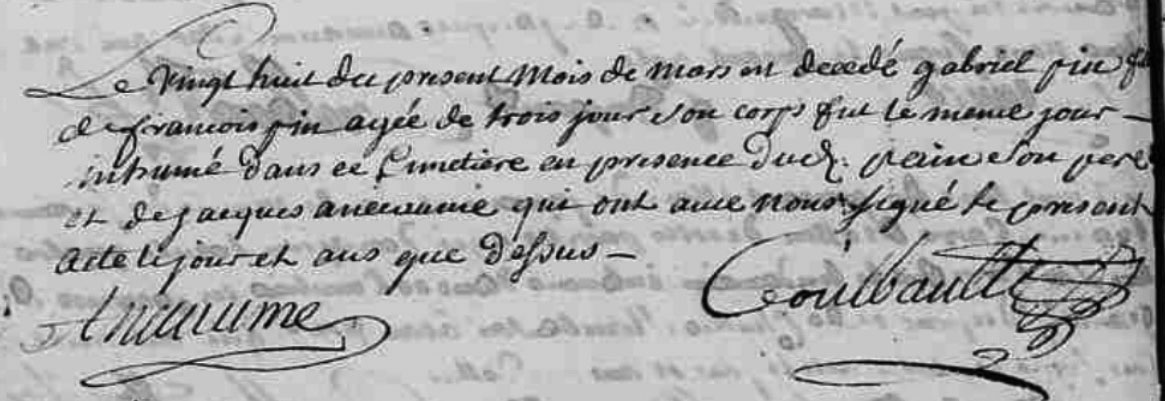 Le vingt huit du present mois de mars est decedé gabriel pin
de francois pin agée de trois jour son corps fut le meme jour
inhumé dans ce Cimetiere en presence dud. pain son pere
et de jacques aneaume qui ont avec nous signé le present
acte le jour et ans que dessus